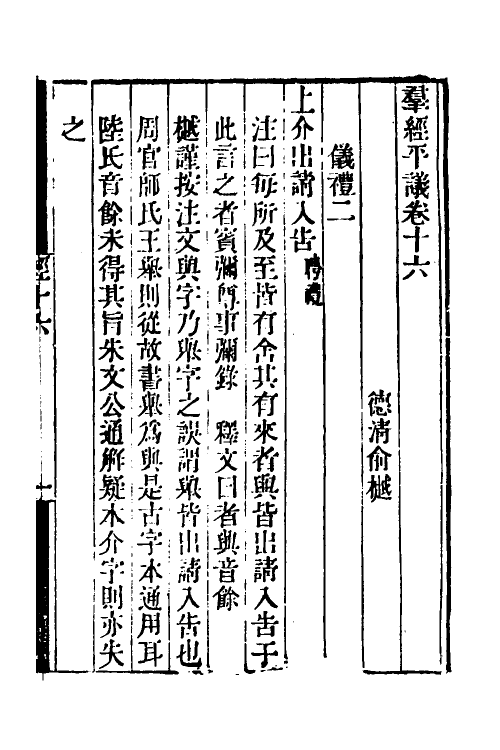 羣經平議卷十六
德清俞樾
儀禮二
上介出請入告聘禮
注曰每所及至皆有舍其有來者與皆出請入告于
此言之者賓彌尊事彌錄　釋文曰者與音餘
樾謹按注文與字乃舉字之誤謂舉皆出請入告也
周官師氏王舉則從故書舉爲與是古字本通用耳
陸氏音餘未得其旨朱文公通解疑本介字則亦失
之
經十六
一